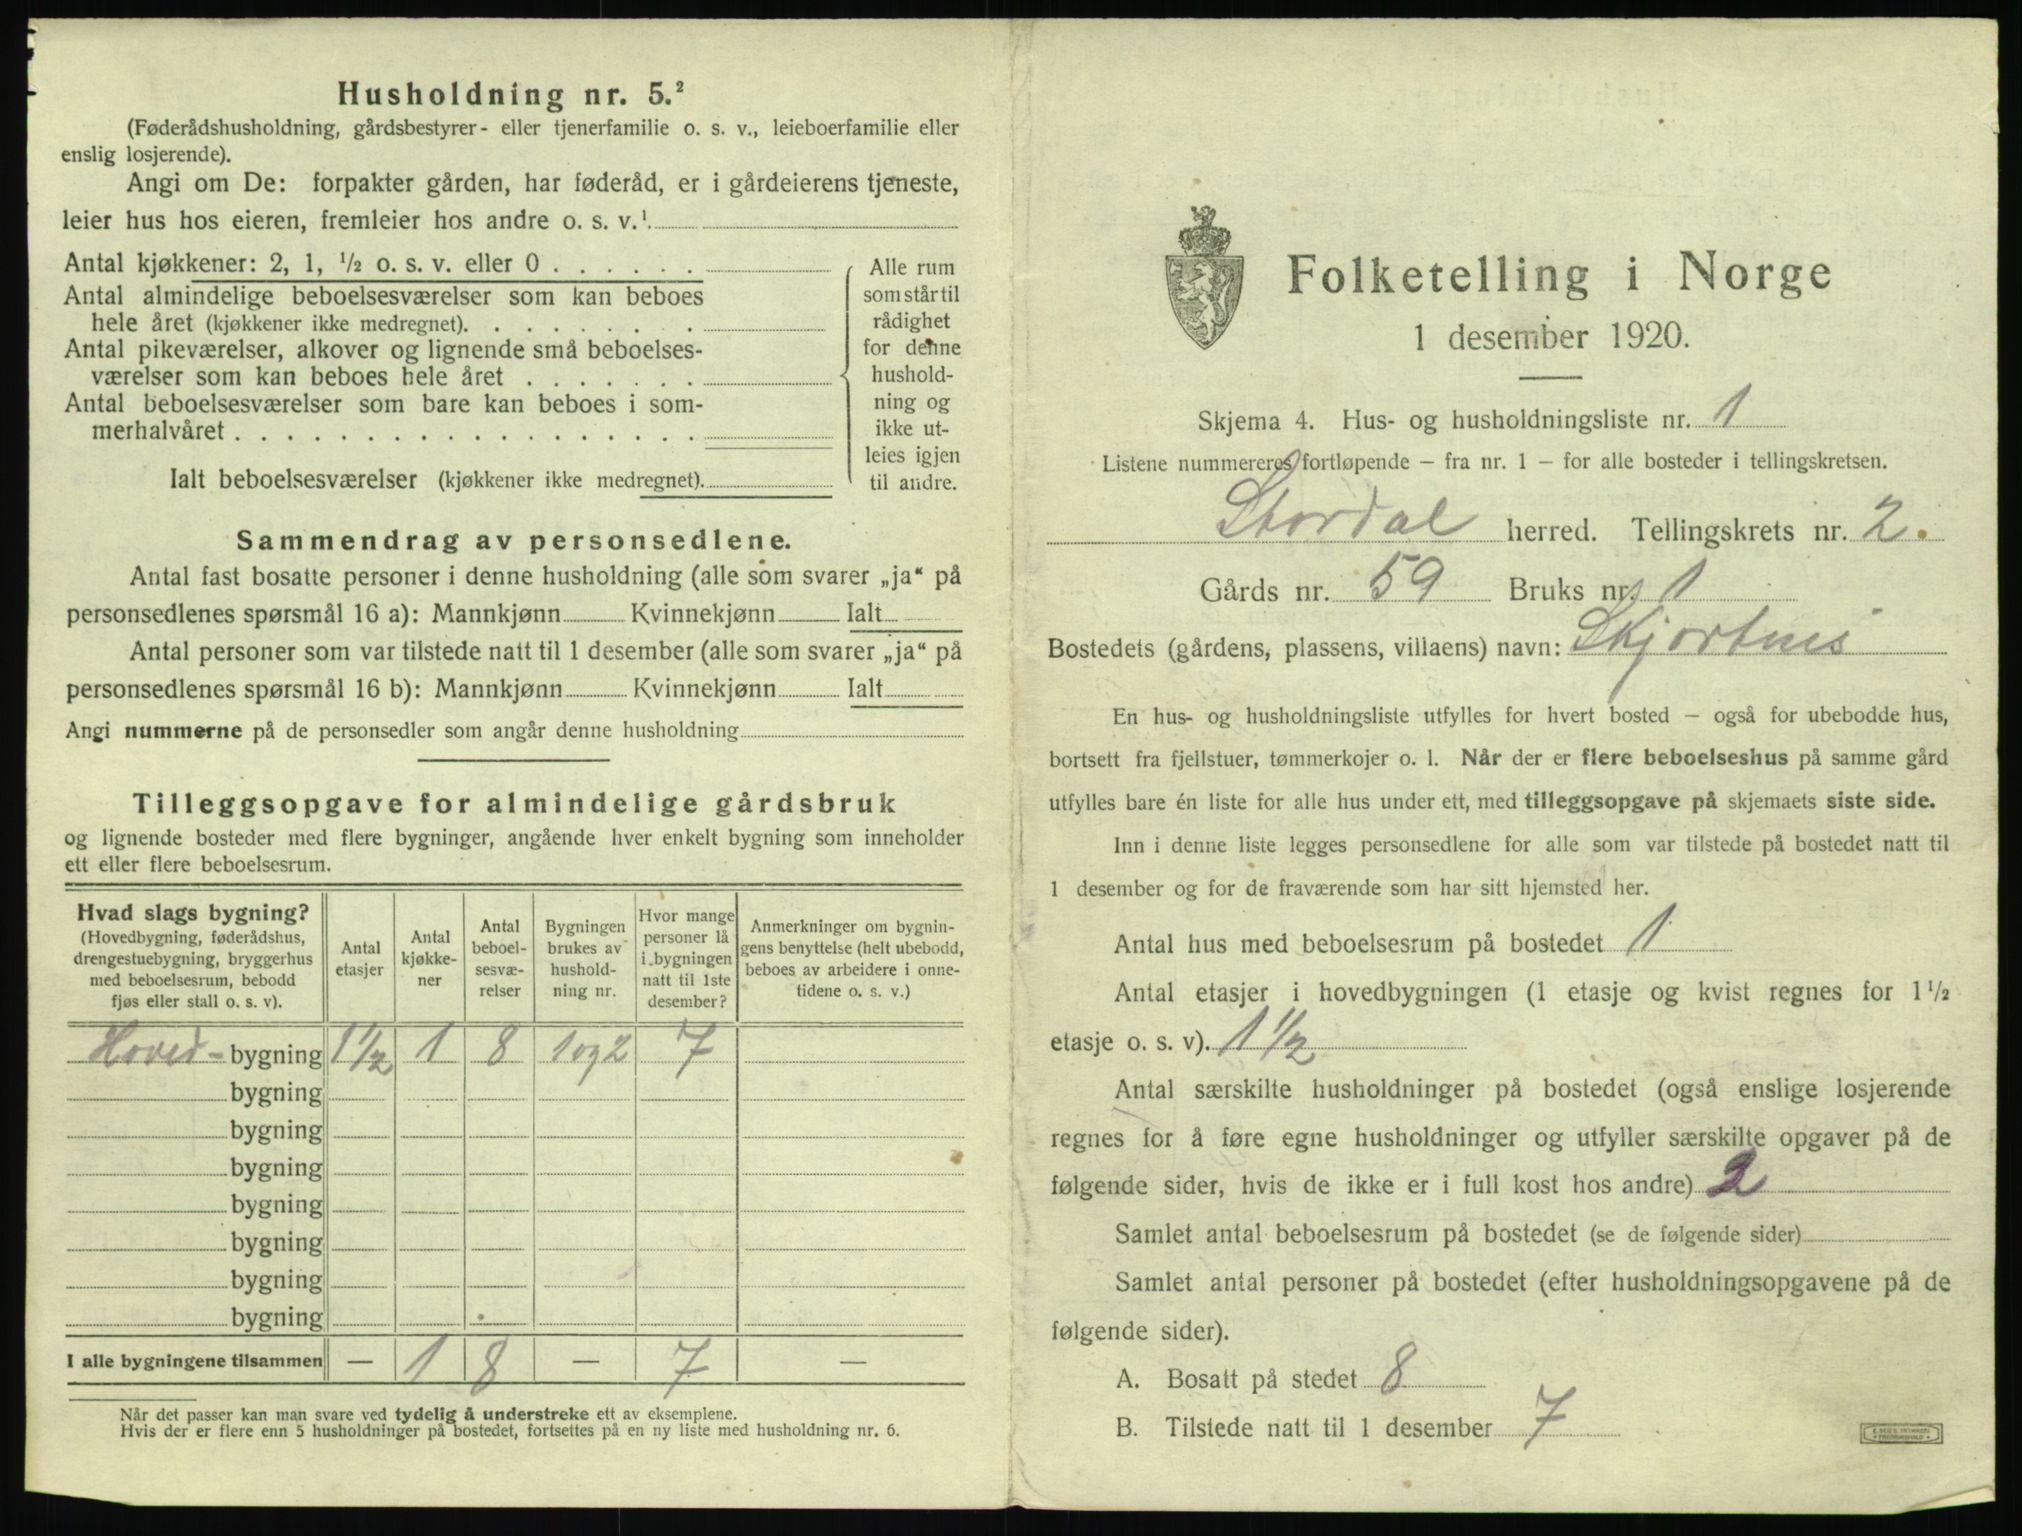 Husholdning nr. 5.²
(Føderådshusholdning, gårdsbestyrer- eller tjenerfamilie o. s. v., leieboerfamilie eller
enslig losjerende).
Angi om De: forpakter gården, har føderåd, er i gårdeierens tjeneste,
leier hus hos eieren, fremleier hos andre o. s. v.¹
Antal kjøkkener: 2, 1, ½ o. s. v. eller 0
Antal almindelige beboelsesværelser som kan beboes
hele året (kjøkkener ikke medregnet).
Antal pikeværelser, alkover og lignende små beboelses-
værelser som kan beboes hele året
Antal beboelsesværelser som bare kan beboes i som-
merhalvåret
Ialt beboelsesværelser (kjøkkener ikke medregnet).
Alle rum
som står til
rådighet
for denne
hushold-
ning og
ikke ut-
leies igjen
til andre.
Sammendrag av personsedlene.
Antal fast bosatte personer i denne husholdning (alle som svarer „ja“ på
personsedlenes spørsmål 16 a): Mannkjønn Kvinnekjønn Ialt
Antal personer som var tilstede natt til 1 desember (alle som svarer „ja“ på
personsedlenes spørsmål 16 b): Mannkjønn Kvinnekjønn Ialt
Angi nummerne på de personsedler som angår denne husholdning
Tilleggsopgave for almindelige gårdsbruk
og lignende bosteder med flere bygninger, angående hver enkelt bygning som inneholder
ett eller flere beboelsesrum.
Hvad slags bygning?
(Hovedbygning, føderådshus,
drengestuebygning, bryggerhus
med beboelsesrum, bebodd
fjøs eller stall o. s. v).
Antal
etasjer
Antal
kjøkke-
ner
Antal
beboel-
sesvæ-
relser
Bygningen
brukes av
hushold-
ning nr.
Hvor mange
personer lå
i bygningen
natt til 1ste
desember?
Anmerkninger om bygnin-
gens benyttelse (helt ubebodd,
beboes av arbeidere i onne-
tidene o. s. v.)
Hoved- bygning 1½ 1 8 1 og 2 7
bygning
bygning
bygning
bygning
bygning
bygning
bygning
I alle bygningene tilsammen — 1 8 — 7 —
Når det passer kan man svare ved tydelig å understreke ett av eksemplene.
Hvis der er flere enn 5 husholdninger på bostedet, fortsettes på en ny liste med husholdning nr. 6.
Folketelling i Norge
1 desember 1920.
Skjema 4. Hus- og husholdningsliste nr. 1
Listene nummereres fortløpende – fra nr. 1 – for alle bosteder i tellingskretsen.
Stordal herred. Tellingskrets nr. 2.
Gårds nr. 59 Bruks nr. 1
Bostedets (gårdens, plassens, villaens) navn: Skjortnes
En hus- og husholdningsliste utfylles for hvert bosted – også for ubebodde hus,
bortsett fra fjellstuer, tømmerkojer o. l. Når der er flere beboelseshus på samme gård
utfylles bare én liste for alle hus under ett, med tilleggsopgave på skjemaets siste side.
Inn i denne liste legges personsedlene for alle som var tilstede på bostedet natt til
1 desember og for de fraværende som har sitt hjemsted her.
Antal hus med beboelsesrum på bostedet 1
Antal etasjer i hovedbygningen (1 etasje og kvist regnes for 1½
etasje o. s. v). 1½
Antal særskilte husholdninger på bostedet (også enslige losjerende
regnes for å føre egne husholdninger og utfyller særskilte opgaver på de
følgende sider, hvis de ikke er i full kost hos andre) 2
Samlet antal beboelsesrum på bostedet (se de følgende sider)
Samlet antal personer på bostedet (efter husholdningsopgavene på de
følgende sider).
A. Bosatt på stedet 8
B. Tilstede natt til 1 desember 7